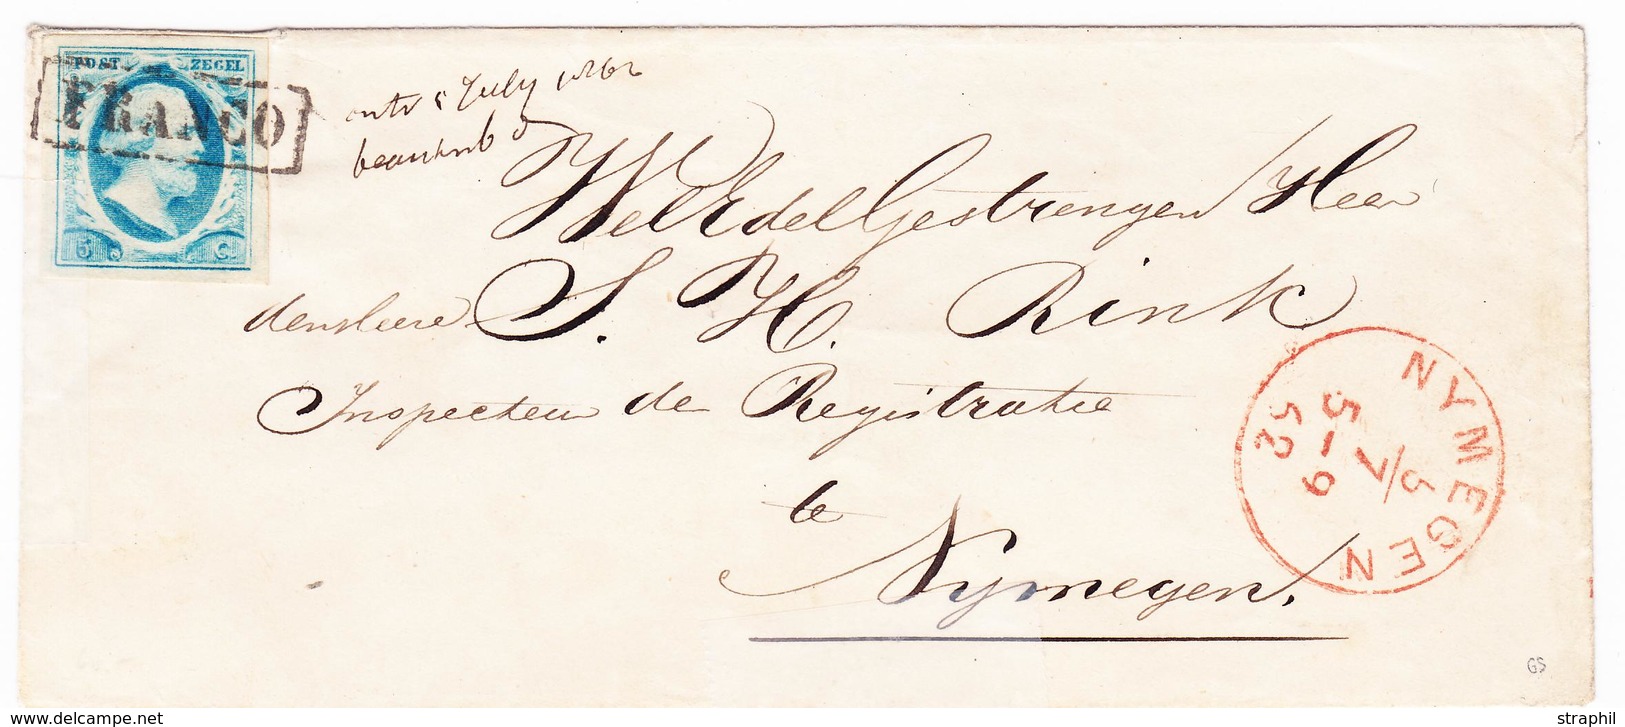 POST ZEGEL
FRANCO
5 C
ontv 5 July 1862
WelEdelGestrengen Heer
den Heere S. H. Rink
Inspecteur de Registratie
te
Nymegen.
NYMEGEN
5/7
5-9
52
GS
straphil